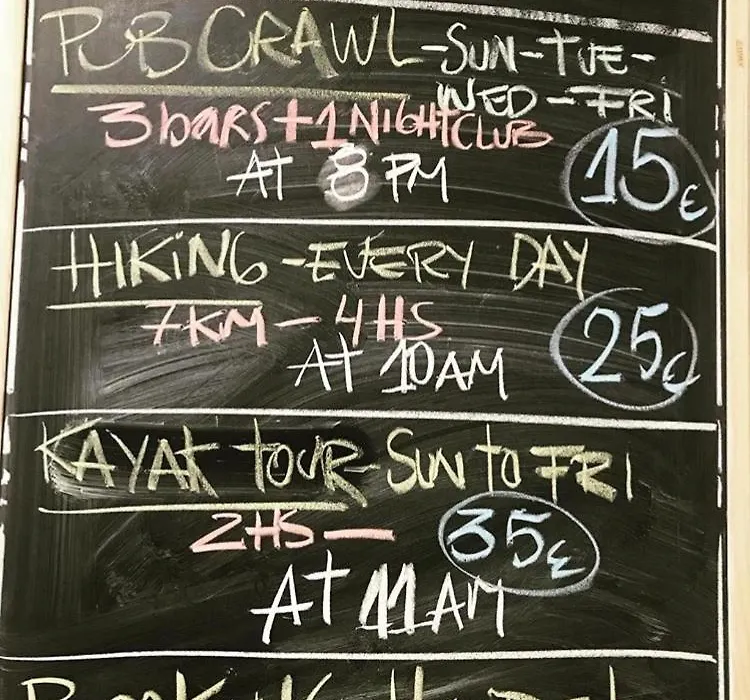 PUB CRAWL - SUN - TUE -
WED - FRI
3 bars + 1 NIGHTCLUB
AT 8 PM
15€
HIKING - EVERY DAY
7KM - 4HS
25€
AT 10AM
KAYAK TOUR - SUN to FRI
2HS - 35€
AT 11AM